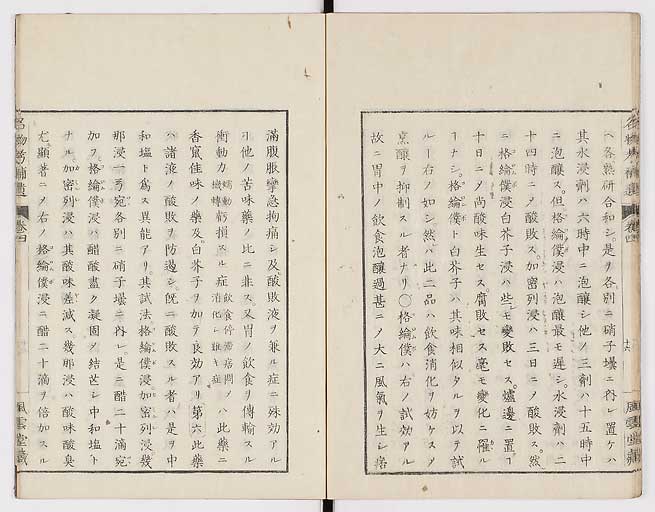 ヘ各熟研合和シ是ヲ各別ニ硝子壜ニ内レ置ケハ
其水浸劑ハ六時中ニ泡釀シ他ノ三劑ハ十五時中
ニ泡釀ス但格綸僕浸ハ泡釀最モ遅シ水浸劑ハ二
十四時ニノ酸敗ス加密列浸ハ三日ニノ酸敗ス然
ニ格綸僕浸白芥子浸ハ些モ變敗セス爐邊ニ置
十日ニノ尚酸味生セス腐敗セス毫モ變化ニ罹ル
ナシ格綸僕ト白芥子ハ其味相似タルヲ以テ試
ルー右ノ如シ然ハ此二品ハ飲食消化ヲ妨ケスノ
烹釀ヲ抑制スル者ナリ〇格綸僕ハ右ノ試効アル
故ニ胃中ノ飲食泡釀過甚ニノ大ニ風氣ヲ生シ痞
滿腹脹攣急拘痛シ及酸敗液ヲ兼ル症ニ殊効アル
他ノ苦味藥ノ比ニ非ス又胃ノ飲食ヲ傳輸スル
衝動力 蠕動機轉 虧損スル症 飲食停滯痞悶ノ消化シ難キ症 ハ此藥ニ
香竄佳味ノ藥及白芥子ヲ加テ良効アリ第六此藥
ハ諸液ノ酸敗ヲ防遏シ既ニ酸敗スル者ハ是ヲ中
和塩ト爲ス異能アリ其試法格綸僕浸加密列浸幾
那浸一弓宛各別ニ硝子壜ニ内レ是ニ醋二十滴宛
加フ格綸僕浸ハ醋酸盡ク凝固ノ結芒シ中和塩ト
ナル加密列浸ハ其酸味差減ス幾那浸ハ酸味酸臭
尤顯著ニノ右ノ格綸僕浸ニ醋二十滴ヲ倍加スル
名物考補遺
卷四
風雲堂藏